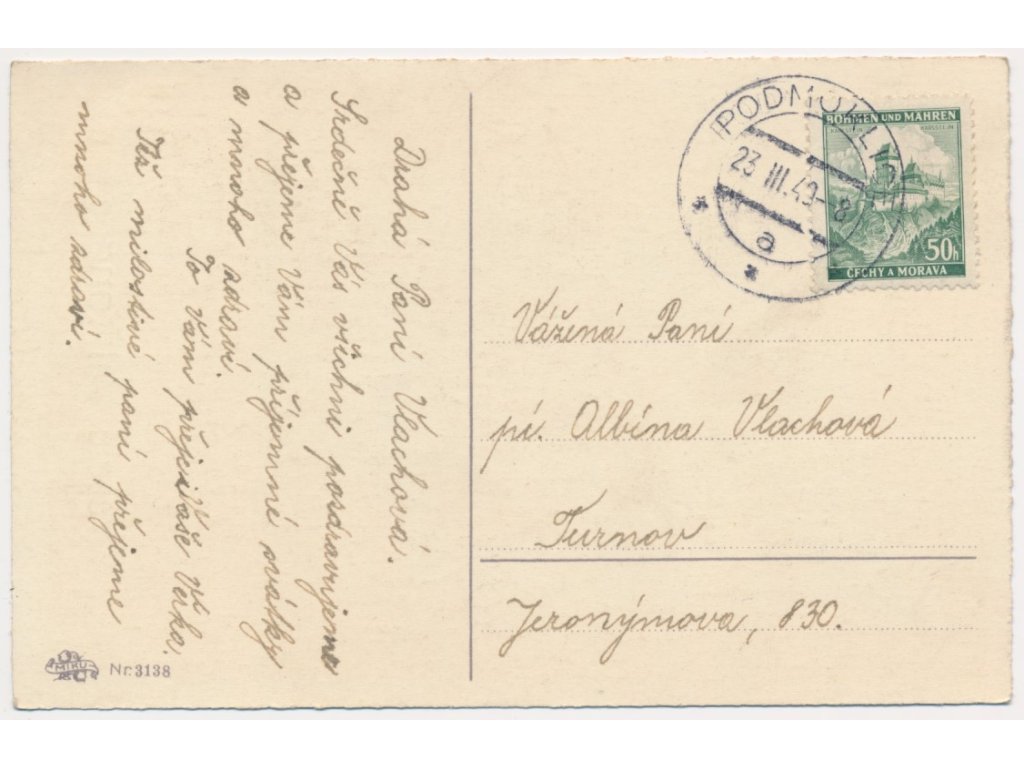 Drahá Paní Vlachová.
Srdečně Vás všichni pozdravujeme
a přejeme Vám příjemné svátky
a mnoho zdraví.
To Vám přeje Vaše Věrka.
Též milostivé paní přejeme
mnoho zdraví.
MIKU
Nr. 3138
23.III.40-8
a
BÖHMEN UND MÄHREN
KARLSTEIN KARLŠTEJN
50h
ČECHY A MORAVA
Vážená Paní
pí. Albína Vlachová
Turnov
Jeronýmova, 830.